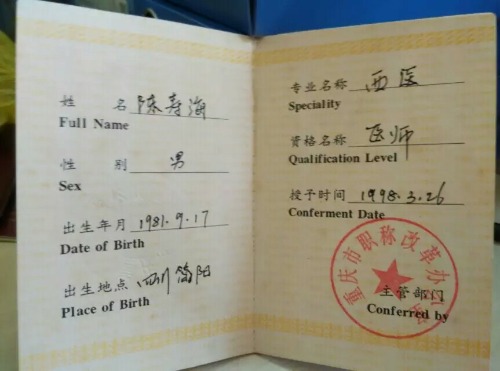 姓 名 陈寿海
Full Name
性 别 男
Sex
出生年月 1981.9.17
Date of Birth
出生地点 四川简阳
Place of Birth
专业名称 西医
Speciality
资格名称 医师
Qualification Level
授予时间 1998.3.26
Conferment Date
重庆市职称改革办公室
主管部门
Conferred by